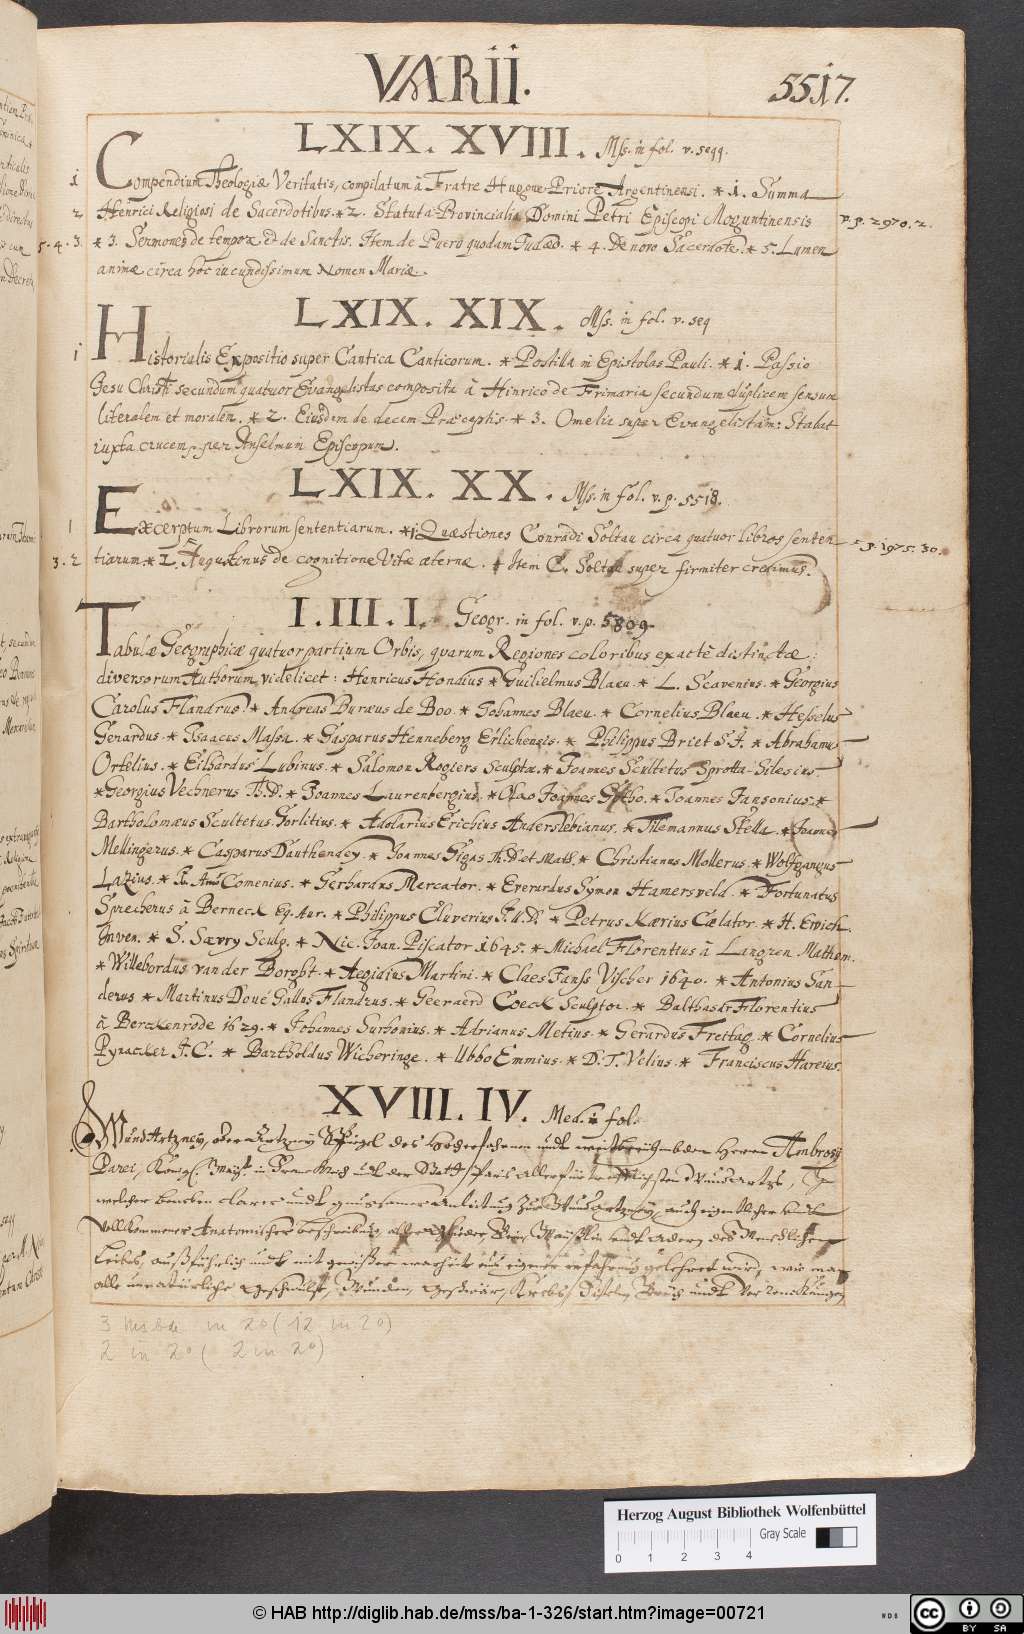 VARII.
5517.
LXIX. XVIII. Mss. in fol. v. seqq.
1 Compendium Theologiæ Veritatis, compilatum â Fratre Hugone Priore Argentinensi. * 1. Summa
2 Henrici Religiosi de Sacerdotibus. * 2. Statuta Provincialia Domini Petri Episcopi Moguntinensis v. p. 2970. 2.
5. 4. 3. * 3. Sermones de tempore et de Sanctis. Item de Puero quodam Judæo. * 4. De novo Sacerdote. * 5. Lumen
animæ circa hoc iucundissimum Nomen Mariæ.
LXIX. XIX. Mss. in fol. v. seq
1 Historialis Expositio super Cantica Canticorum. * Postilla in Epistolas Pauli. * 1. Passio
Gesu Christi secundum quatuor Evangelistas composita â Hinrico de Frimaria secundum duplicem sensum
literalem et moralem. * 2. Eiusdem de decem Præceptis. * 3. Omelia super Evangelistam: Stabat
iuxta crucem, per Anselmum Episcopum.
LXIX. XX. Mss. in fol. v. p. 5518.
1 Excerptum Librorum sententiarum. * 1 Quæstiones Conradi Soltau circa quatuor libros senten p. 1975. 30.
3. 2 tiarum. * 2. Augustinus de cognitione Vitæ æternæ. * Item C. Soltau super firmiter credimus.
I. III. I. Geogr. in fol. v. p. 5809.
Tabulæ Geographicæ quatuor partium Orbis, quarum Regiones coloribus exactè distinctæ:
diversorum Authorum, videlicet: Henricus Hondius * Guilielmus Blaeu. * L. Scavenius. * Georgius
Carolus Flandrus. * Andreas Buræus de Boo. * Johannes Blaeu. * Cornelius Blaeu. * Hesselus
Gerardus. * Isaacus Massa. * Gasparus Henneberg Erlichensis. * Philippus Briet S. J. * Abrahamus
Ortelius. * Eilhardus Lubinus. * Salomon Rogiers Sculptor. * Joannes Scultetus Sprotta-Silesius
* Georgius Vechnerus Th. D. * Joannes Laurenbergius. * Olao Joannes Gotho. * Joannes Jansonius. *
Bartholomæus Scultetus Gorlitius. * Adolarius Erichius Anderslebianus. * Tilemannus Stella. * Joannes
Mellingerus. * Casparus Dauthendey. * Joannes Gigas Th. D. et Math. * Christianus Mollerus. * Wolfgangus
Lazius. * J. Am. Comenius. * Gerhardus Mercator. * Everardus Symon Hamersveld. * Fortunatus
Sprecherus â Berneck Eq. Aur. * Philippus Cluverius J. U. D. * Petrus Kærius Cælator. * H. Ewich
Inven. * S. Savry Sculp. * Nic. Joan. Piscator 1645. * Michael Florentius â Langren Mathem.
* Willebordus van der Borght. * Aegidius Martini. * Claes Janss Vischer 1640. * Antonius San-
derus * Martinus Doué Gallus Flandrus. * Geeraerd Coeck Sculptor. * Balthasar Florentius
â Berckenrode 1629. * Johannes Surhonius. * Adrianus Metius. * Gerardus Freitag. * Cornelius
Pynacker J. C. * Bartholdus Wicheringe. * Ubbo Emmius. * D. T. Velius. * Franciscus Hareius.
XVIII. IV. Med. in fol.
Wund Artzney, oder Artzney Spiegel des hocherfahrnen undt weitberühmbden Herrn Ambrosij
Parei, Königl. Mayst. in Franckreich undt der Stadt Paris allerfürtrefflichsten Wundartzts,
welcher beneben clarer undt gewisser anleitung zur Wundartzney, auch eigentlicher undt
Vollkommener Anatomischer beschreibung aller glieder, Bein, Mäusslin undt adern des Menschlichen
Leibes, außführlich undt mit gewißer warheit aus eigener erfahrung gelehret wird, wie man
alle unnatürliche geschwülst, Wunden, geschwär, Krebs, Fisteln, Brüch undt Verrenckungen
3 in 2° (12 in 2°)
2 in 2° (2 in 2°)
Herzog August Bibliothek Wolfenbüttel
Gray Scale
0 1 2 3 4
© HAB http://diglib.hab.de/mss/ba-1-326/start.htm?image=00721
BY SA